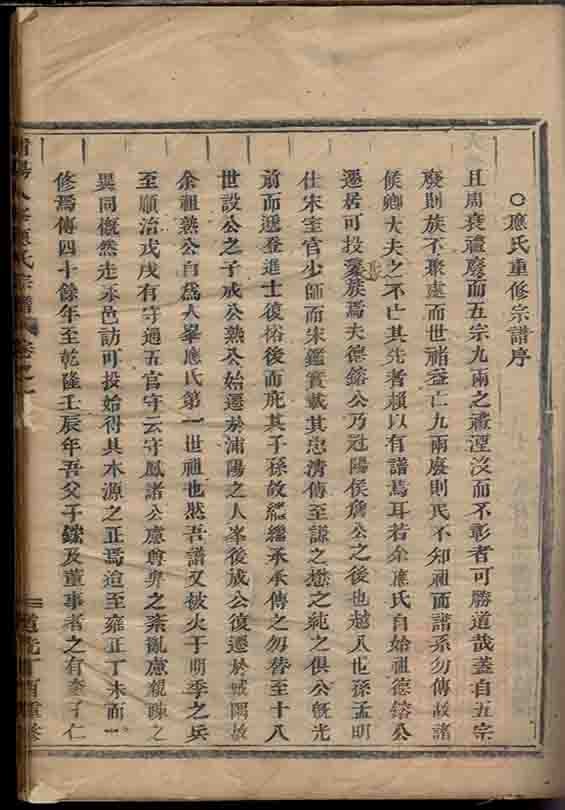 ○應氏重修宗譜序
且周衰禮廢而五宗九兩之禮湮沒而不彰者可勝道哉蓋自五宗
廢則族不聚處而世禘益亡九兩廢則民不知祖而譜系勿傳故諸
侯卿大夫之不亡其先者賴以有譜焉耳若余應氏自始祖德鎔公
遷居可投族焉夫德鎔公乃冠陽侯詹公之後也越八世孫孟明
仕宋室官少師而宋鑑實載其忠清傳至謙之懋之純之俱公旣光
前而遞登進士復裕後而庇其子孫故繼繼承承傳之勿替至十八
世設公之子成公熱公始遷於浦陽之人峯後成公復遷於城隅故
余祖熱公自為人峯應氏第一世祖也然吾譜又被火于明季之兵
至順治戊戌有守通五官守云守鳳諸公慮尊卑之紊亂慮親疎之
異同慨然走永邑訪可投始得其本源之正焉迨至雍正丁未而一
修焉傳四十餘年至乾隆壬辰年吾父子鑅及董事者之有奎子仁
浦陽人峯應氏宗譜 卷之一
道光丁酉重修